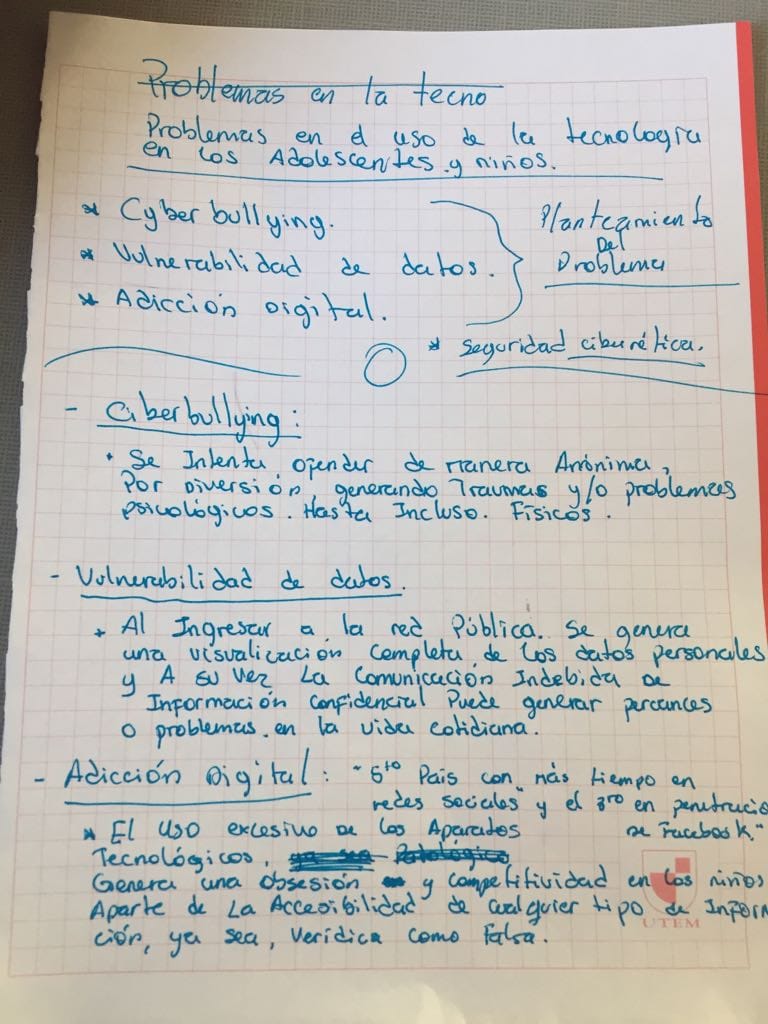 Problemas en la tecno
Problemas en el uso de la tecnología
en los Adolescentes y niños.
* Cyberbullying.
* Vulnerabilidad de datos.
* Adicción Digital.
Planteamiento
Del
Problema
* Seguridad ciburética.
- Ciberbullying:
• Se Intenta ofender de manera Anónima,
Por diversión, generando Traumas y/o problemas
psicológicos. Hasta Incluso. Físicos.
- Vulnerabilidad de datos.
* Al Ingresar a la red Pública. Se genera
una visualización completa de los datos personales
y A su vez La Comunicación Indebida de
Información Confidencial Puede generar percances
o problemas en la vida cotidiana.
- Adicción Digital: "5to País con más tiempo en
redes sociales" y el 3ro en penetració
de Facebook."
* El Uso excesivo de los Aparatos
Tecnológicos, ya sea Patológico
Genera una Obsesión y competitividad en los niños
Aparte de La Accesibilidad de cualquier tipo de Inform
ción, ya sea, Verídica como Falsa.
UTEM